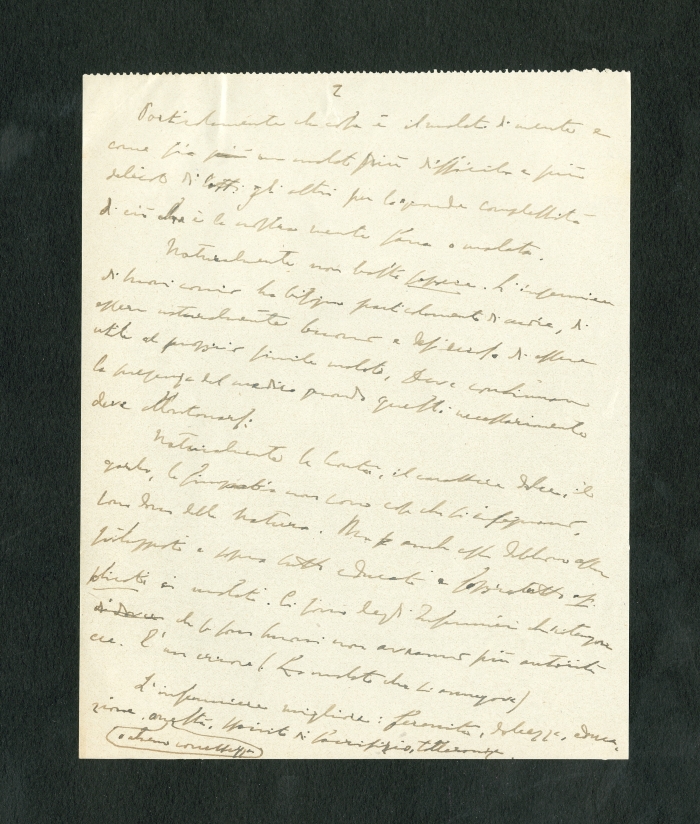 2
Particolarmente che cosa è il malato di mente e
come sia un malato più difficile e più
delicato di tutti gli altri per la grande complessità
di ciò che è la nostra mente sana o malata.
Naturalmente non basta sapere. L'infermiere
di manicomio ha bisogno particolarmente di cuore, di
essere naturalmente buono e desideroso di essere
utile al proprio simile malato. Deve continuare
la presenza del medico quando questi necessariamente
deve allontanarsi.
Naturalmente la bontà, il carattere dolce, il
garbo, la simpatia non sono cose che si insegnano,
sono dono della natura. Ma anche esse debbono essere
sviluppate e sopra tutto educate e
ai malati. Ci sono degli Infermieri che
che se sono buoni non avranno più autorità
ecc. È un errore! (Un malato che si)
L'infermiere migliore: serenità, dolcezza, educa-
zione, onestà, spirito di sacrificio, tolleranza,
o almeno correttezza